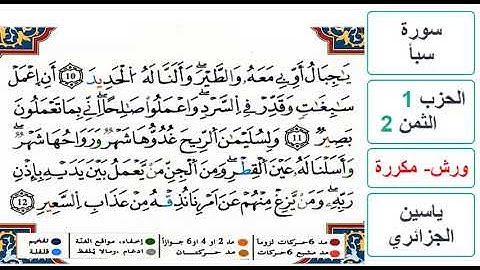 يَٰجِبَالُ أَوِّبِى مَعَهُۥ وَالطَّيْرَۖ وَأَلَنَّا لَهُ الْحَدِيدَ 10 أَنِ اِعْمَلْ
سَٰبِغَٰتٖ وَقَدِّرْ فِى السَّرْدِۖ وَاعْمَلُوا صَٰلِحاًۖ اِنِّى بِمَا تَعْمَلُونَ
بَصِيرٞ 11 وَلِسُلَيْمَٰنَ الرِّيحَ غُدُوُّهَا شَهْرٞ وَرَوَاحُهَا شَهْرٞۖ
وَأَسَلْنَا لَهُۥ عَيْنَ الْقِطْرِۖ وَمِنَ الْجِنِّ مَنْ يَّعْمَلُ بَيْنَ يَدَيْهِ بِإِذْنِ
رَبِّهِۦۖ وَمَنْ يَّزِغْ مِنْهُمْ عَنَ اَمْرِنَا نُذِقْهُ مِنْ عَذَابِ السَّعِيرِ 12
مد 6 حركات لزوما
مد 2 او 4 او 6 جوازاً
إخفاء، مواقع الغنّة
تفخيم
مد مشبع 6 حركات
مد حركتان
ادغام، ومالا يُلفظ
قلقلة
سورة
سبأ
الحزب 1
الثمن 2
ورش- مكررة
ياسين
الجزائري